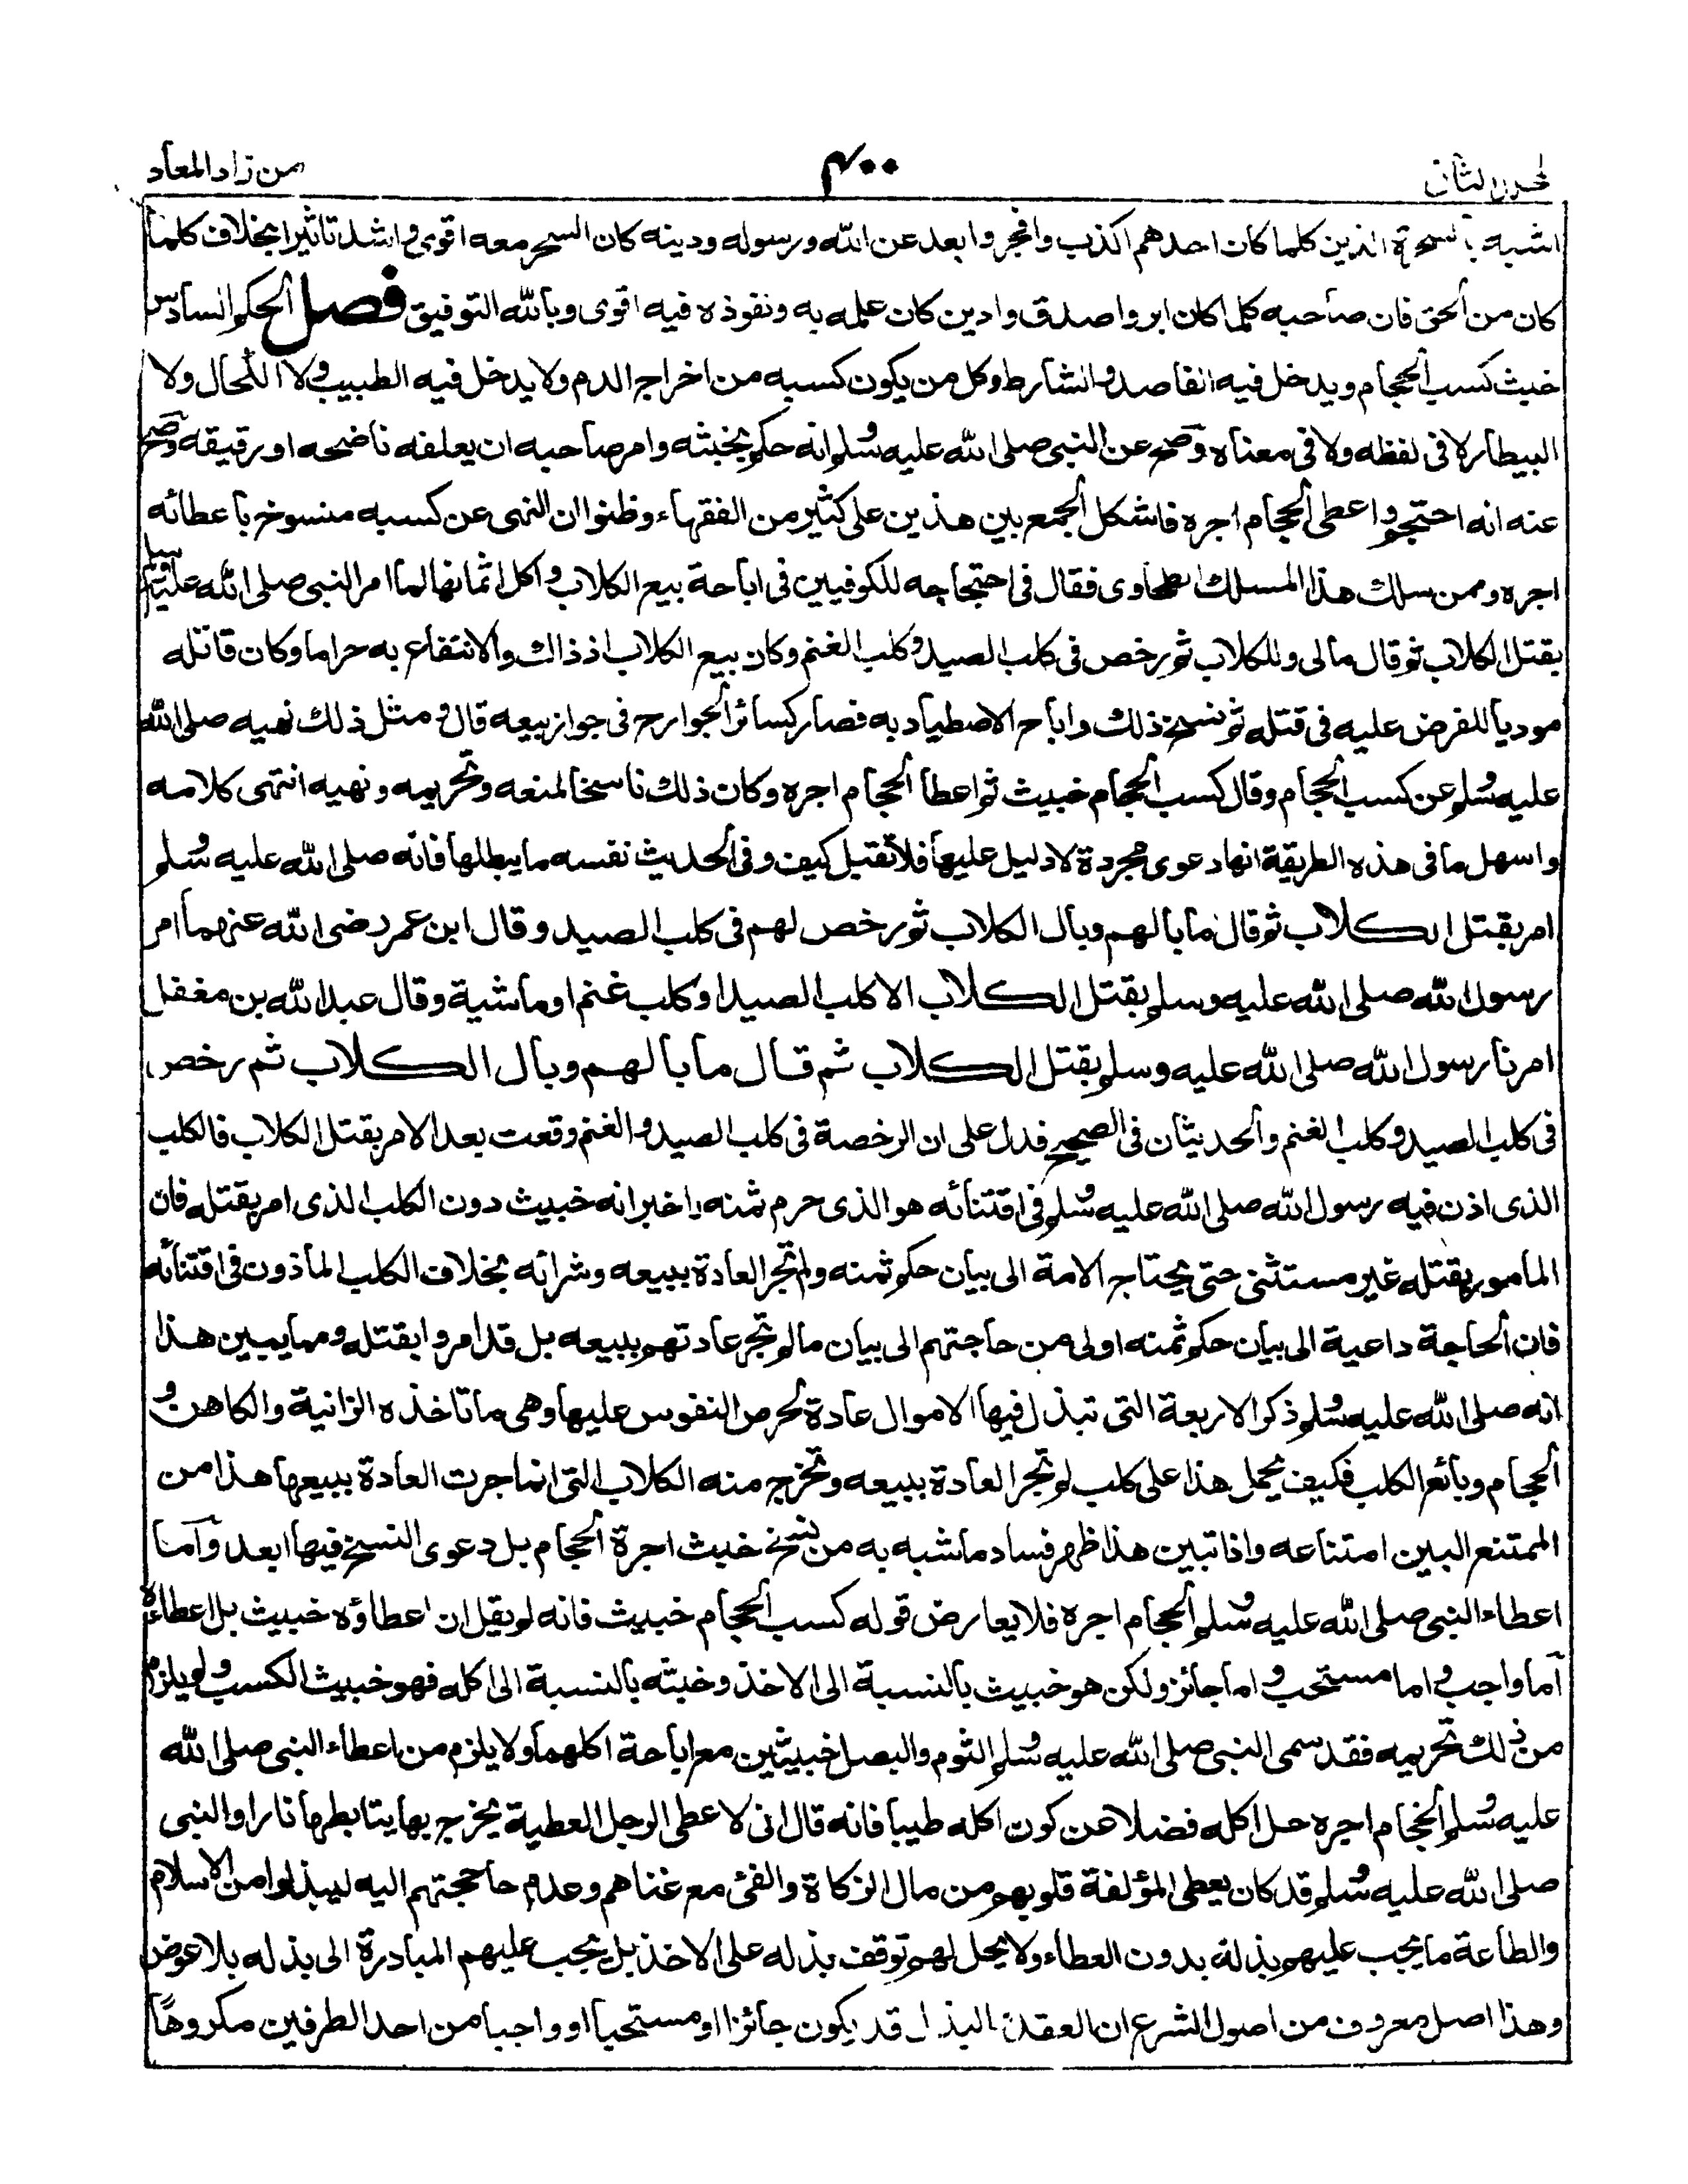 الجزء الثانى ٤٠٠ من زاد المعاد
اشبه بالسحرة الذين كلما كان احدهم اكذب وافجر وابعد عن الله ورسوله ودينه كان السحر معه اقوى واشد تاثيرا بخلاف كلما
كان من الحق فان صاحبه كلما كان ابر واصدق وادين كان علمه به ونفوذه فيه اقوى وبالله التوفيق فصل الحكم السادس
خبث كسب الحجام ويدخل فيه الفاصد والشارط وكل من يكون كسبه من اخراج الدم ولا يدخل فيه الطبيب ولا الكحال ولا
البيطار لا فى لفظه ولا فى معناه وصح عن النبى صلى الله عليه وسلم انه حكم بخبثه وامر صاحبه ان يعلفه ناضحه او رقيقه وصح
عنه انه احتجم واعطى الحجام اجره فاشكل الجمع بين هذين على كثير من الفقهاء وظنوا ان النهى عن كسبه منسوخ باعطائه
اجره وممن سلك هذا المسلك الطحاوى فقال فى احتجاجه للكوفيين فى اباحة بيع الكلاب واكل اثمانها لما امر النبى صلى الله عليه وسلم
بقتل الكلاب ثم قال مالى وللكلاب ثم رخص فى كلب الصيد وكلب الغنم وكان بيع الكلاب اذ ذاك والانتفاع به حراما وكان قاتله
موديا للفرض عليه فى قتله ثم نسخ ذلك واباح الاصطياد به فصار كسائر الجوارح فى جواز بيعه قال ومثل ذلك نهيه صلى الله
عليه وسلم عن كسب الحجام وقال كسب الحجام خبيث ثم اعطا الحجام اجره وكان ذلك ناسخا لمنعه وتحريمه ونهيه انتهى كلامه
واسهل ما فى هذه الطريقة انها دعوى مجردة لا دليل عليها فلا تقبل كيف وفى الحديث نفسه ما يبطلها فانه صلى الله عليه وسلم
امر بقتل الكلاب ثم قال ما بالهم وبال الكلاب ثم رخص لهم فى كلب الصيد وقال ابن عمر رضى الله عنهما امر
رسول الله صلى الله عليه وسلم بقتل الكلاب الا كلب الصيد او كلب غنم او ماشية وقال عبد الله بن مغفل
امرنا رسول الله صلى الله عليه وسلم بقتل الكلاب ثم قال ما بالهم وبال الكلاب ثم رخص
فى كلب الصيد وكلب الغنم والحديثان فى الصحيح فدل على ان الرخصة فى كلب الصيد والغنم وقعت بعد الامر بقتل الكلاب فالكلب
الذى اذن فيه رسول الله صلى الله عليه وسلم فى اقتنائه هو الذى حرم ثمنه واخبر انه خبيث دون الكلب الذى امر بقتله فان
المامور بقتله غير مستثنى حتى يحتاج الامة الى بيان حكم ثمنه ولم تجر العادة ببيعه وشرائه بخلاف الكلب الماذون فى اقتنائه
فان الحاجة داعية الى بيان حكم ثمنه اولى من حاجتهم الى بيان ما لم تجر عادتهم ببيعه بل قد امروا بقتله ومما يبين هذا
انه صلى الله عليه وسلم ذكر الاربعة التى تبذل فيها الاموال عادة لحرص النفوس عليها وهى ما تاخذه الزانية والكاهن و
الحجام وبائع الكلب فكيف يحمل هذا على كلب لم تجر العادة ببيعه وتخرج منه الكلاب التى انما جرت العادة ببيعها هذا من
الممتنع البين امتناعه واذا تبين هذا ظهر فساد ما شبه به من نسخ خبث اجرة الحجام بل دعوى النسخ فيها ابعد واما
اعطاء النبى صلى الله عليه وسلم الحجام اجره فلا يعارض قوله كسب الحجام خبيث فانه لم يقل ان اعطاؤه خبيث بل اعطاءه
اما واجب واما مستحب واما جائز ولكن هو خبيث بالنسبة الى الاخذ وخبثه بالنسبة الى اكله فهو خبيث الكسب ولم يلزم
من ذلك تحريمه فقد سمى النبى صلى الله عليه وسلم الثوم والبصل خبيثين مع اباحة اكلهما ولا يلزم من اعطاء النبى صلى الله
عليه وسلم الحجام اجره حل اكله فضلا عن كون اكله طيبا فانه قال انى لاعطى الرجل العطية يخرج بها يتابطها نارا والنبى
صلى الله عليه وسلم قد كان يعطى المؤلفة قلوبهم من مال الزكاة والفئ مع غناهم وعدم حاجتهم اليه ليبذلوا من الاسلام
والطاعة ما يجب عليهم بذله بدون العطاء ولا يحل لهم توقف بذله على الاخذ بل يجب عليهم المبادرة الى بذله بلا عوض
وهذا اصل معروف من اصول الشرع ان العقد البذل قد يكون جائزا او مستحبا او واجبا من احد الطرفين مكروها